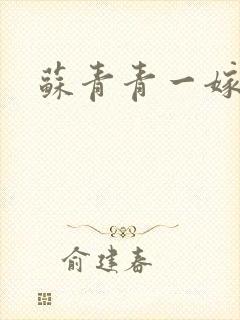 蘇青青一嫁
俞建春